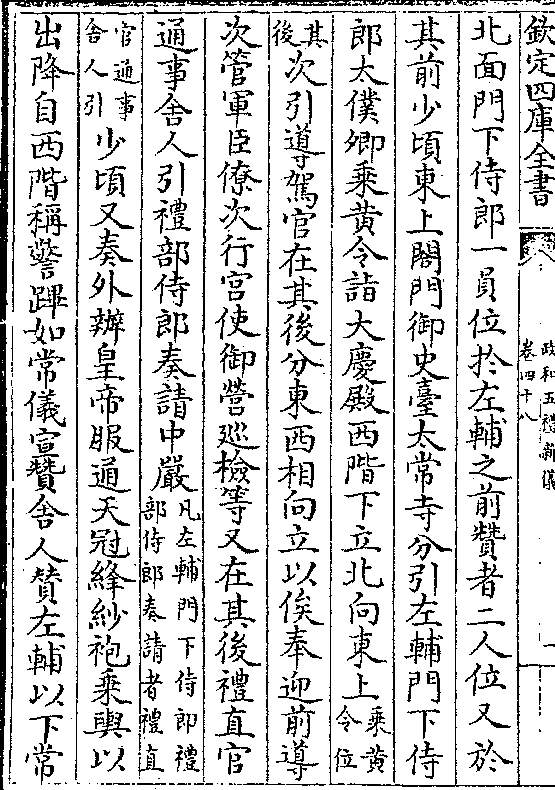 欽定四庫全書
政和五禮新儀
卷四十八
一
北面門下侍郎一員位於左輔之前贊者二人位又於
其前少頃東上閤門御史臺太常寺分引左輔門下侍
郎太僕卿乘黄令詣大慶殿西階下立北向東上
乘黄
令位
其
後
次引導駕官在其後分東西相向立以俟奉迎前導
次管軍臣僚次行宫使御營巡檢等又在其後禮直官
通事舍人引禮部侍郎奏請中嚴
凡左輔門下侍郎禮
部侍郎奏請者禮直
官通事
舍人引
少頃又奏外辦皇帝服通天冠絳紗袍乘輿以
出降自西階稱警蹕如常儀宣贊舍人贊左輔以下常